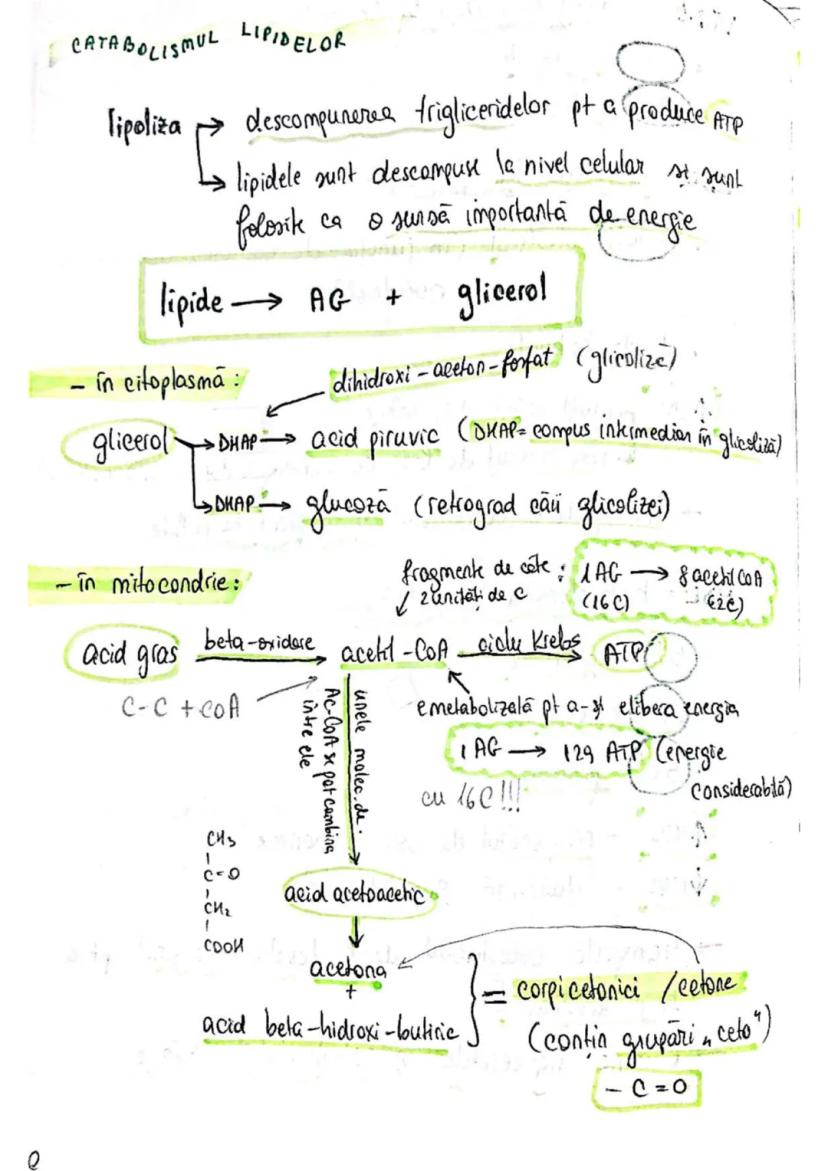 CATABOLISMUL LIPIDELOR
lipoliza → descompunerea trigliceridelor pt a produce ATP
↳ lipidele sunt descompuse la nivel celular și sunt
folosite ca o sursă importantă de energie
lipide → AG + glicerol
- în citoplasmă:
dihidroxi-aceton-fosfat (glicoliză)
glicerol → DHAP → acid piruvic (DHAP = compus intermediar în glicoliză)
↳ DHAP → glucoză (retrograd căii glicolizei)
- în mitocondrie:
fragmente de câte
2 unități de C
: 1 AG → 8 acetil CoA
(16C) (2C)
acid gras beta-oxidare → acetil-CoA ciclu Krebs → ATP
C-C + CoA
unele molec. de
Ac-CoA se pot combina
între ele
e metabolizată pt a-și elibera energia
1 AG → 129 ATP (energie
considerabilă)
cu 16C!!!
CH3
C=O
CH2
COOH
acid acetoacetic
acetona
+
acid beta-hidroxi-butiric
= corpi cetonici / cetone
(conțin grupări „ceto")
- C=O